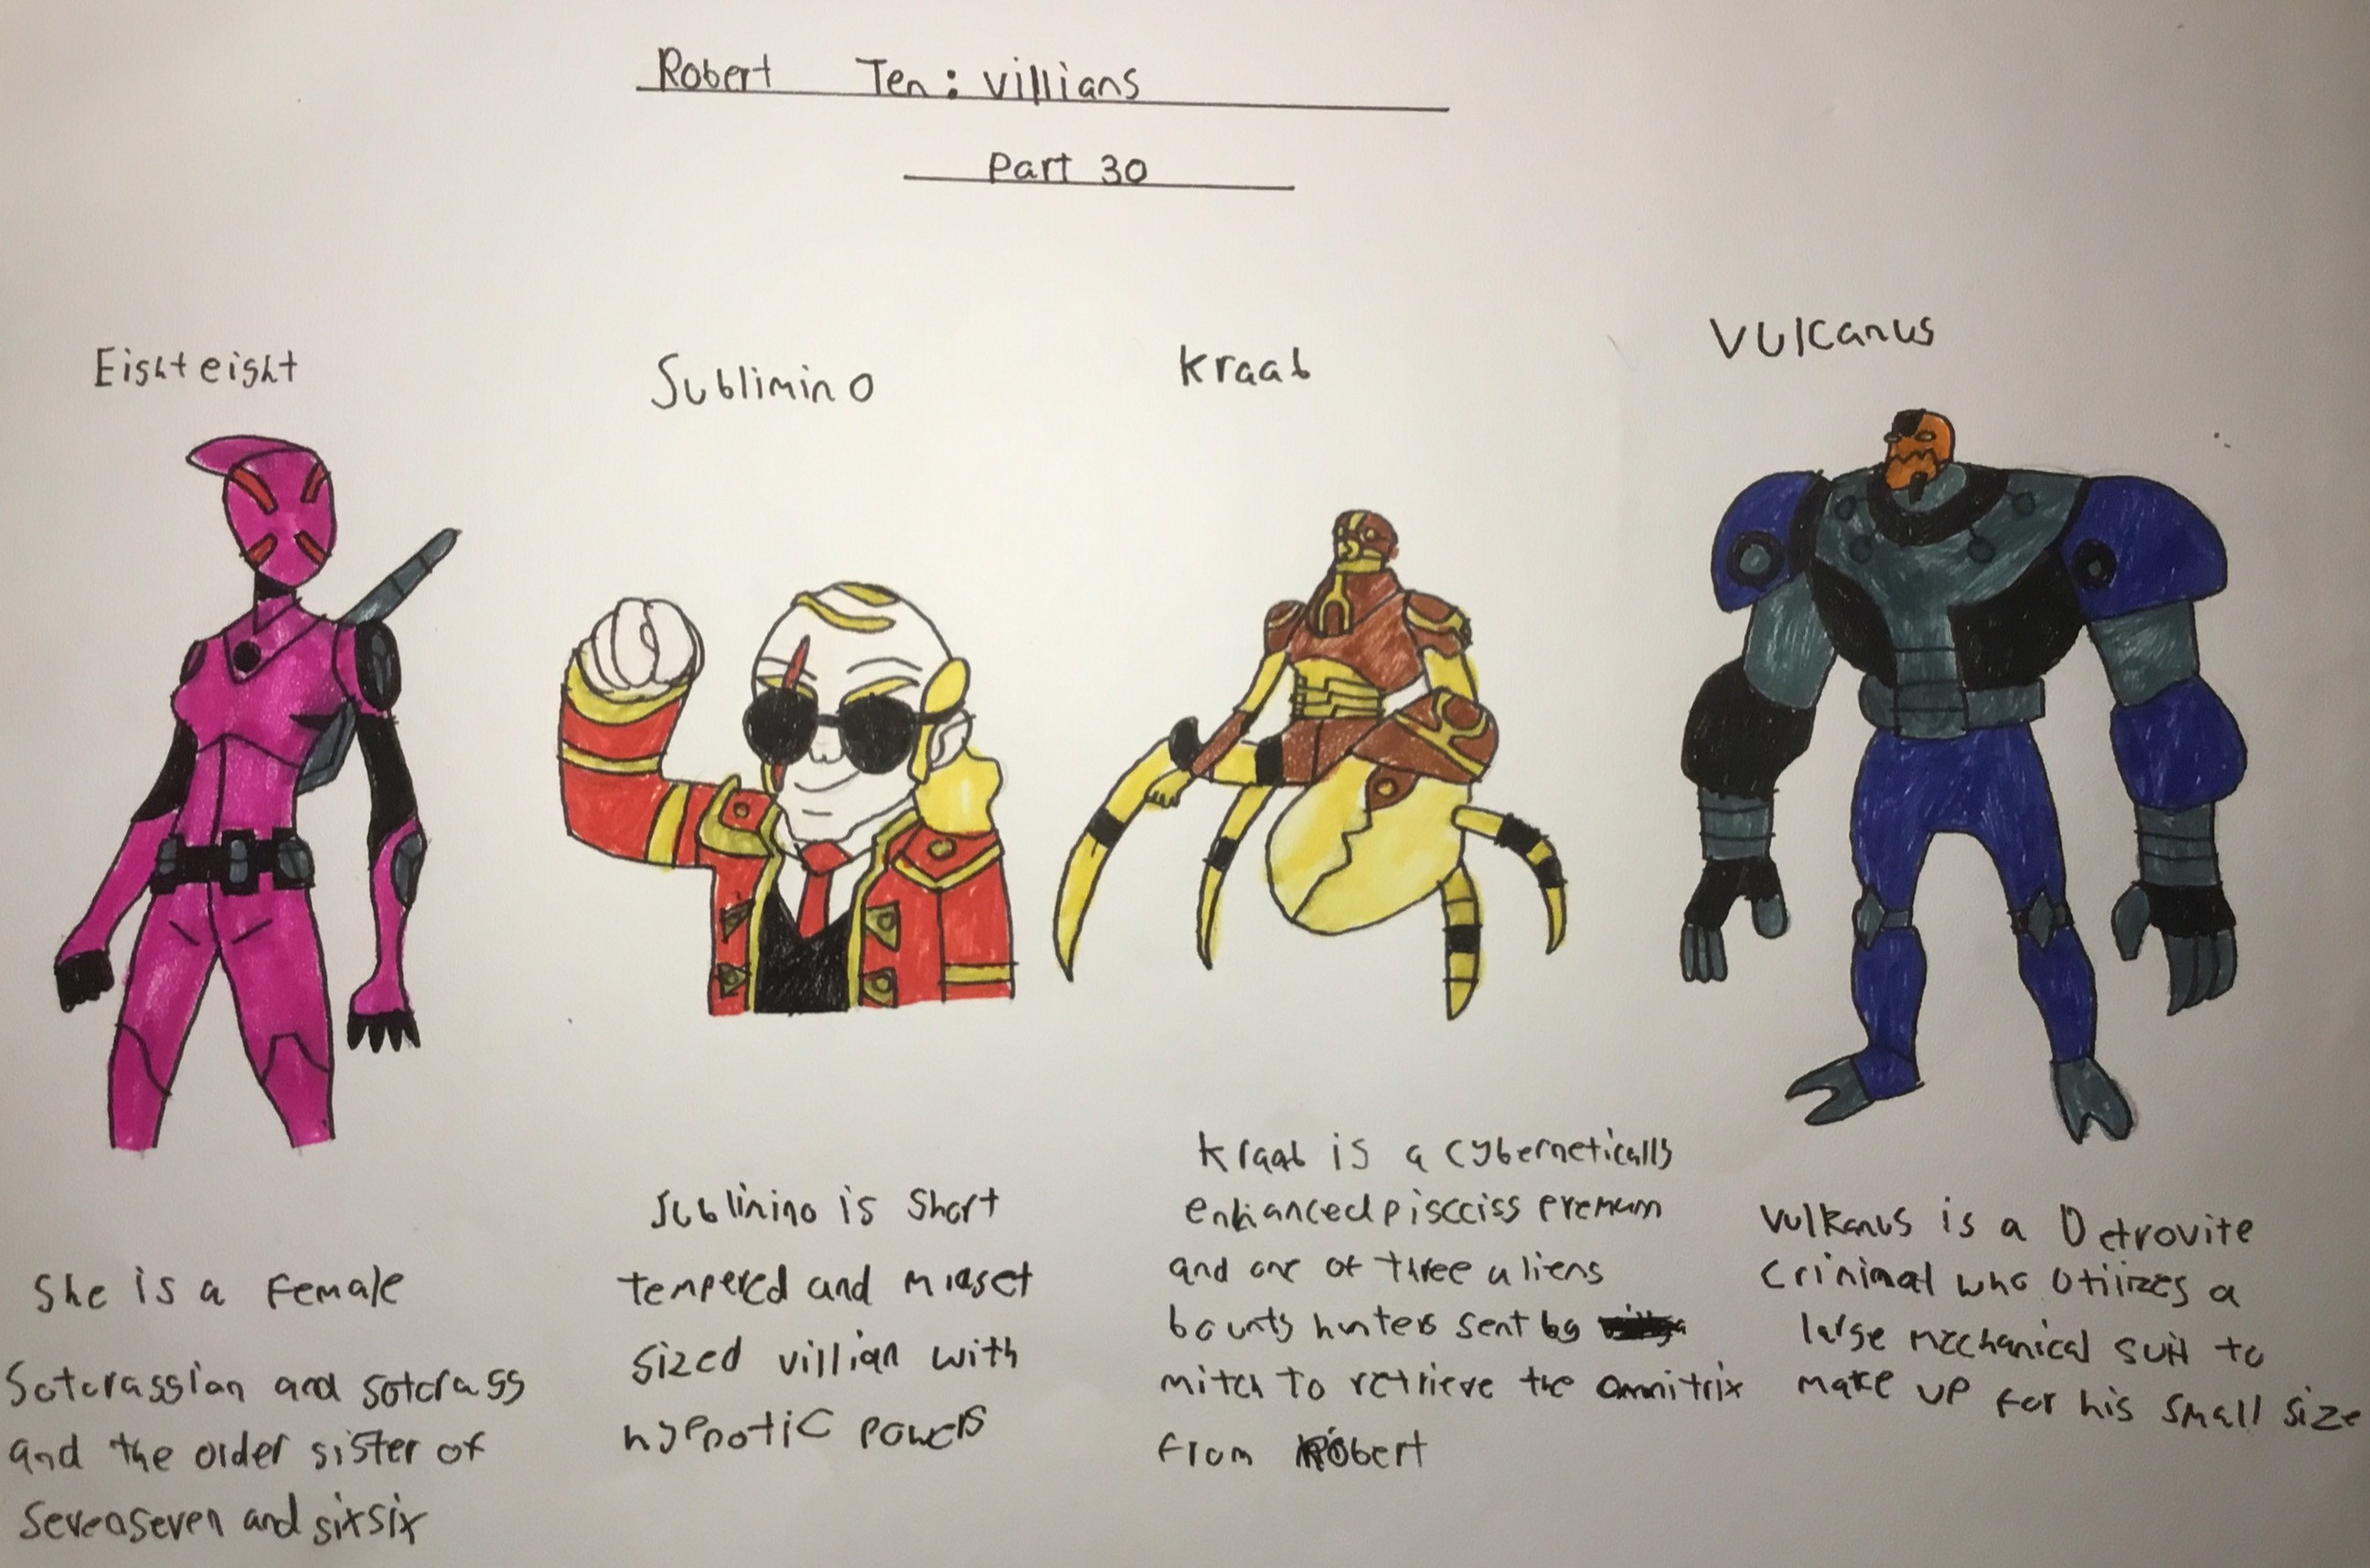 Robert Ten: villians
Part 30
Eighteight
Sublimino
Kraab
Vulcanus
She is a Female
Sotorassian and sotorass
and the older sister of
Sevenseven and sixsix
Sublinino is Short
tempered and midget
sized villian with
hypnotic powers
Kraab is a cybernetically
enhanced piscciss premum
and one of three aliens
bounty hunters sent by
mitch to retrieve the omnitrix
from Robert
Vulkanus is a Detrovite
Criminal who Utilizes a
large mechanical suit to
make up for his small size